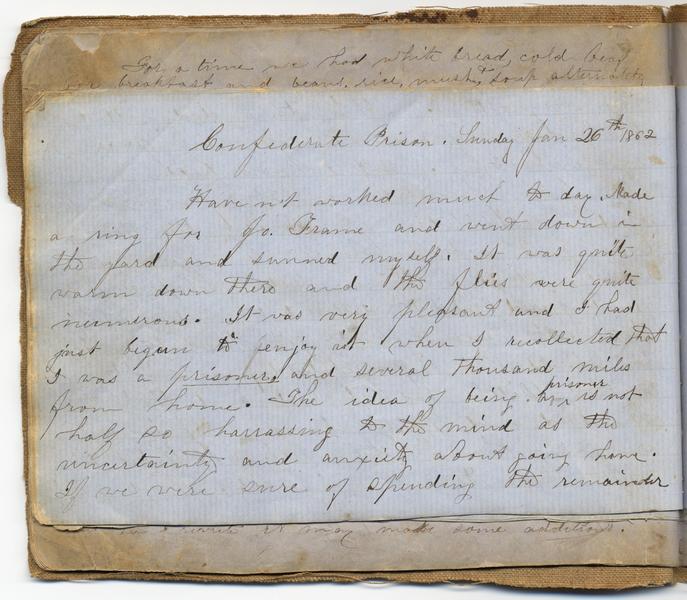 For a time we had white bread, cold beef
for breakfast and beans, rice, mush & soup alternately
Confederate Prison. Sunday Jan 26th 1862
Have not worked much to day. Made
a ring for Jo. Frame and went down in
the yard and sunned myself. It was quite
warm down there and the flies were quite
numerous. It was very pleasant and I had
just begun to enjoy it when I recollected that
I was a prisoner, and several thousand miles
from home. The idea of being prisoner is not
half so harrassing to the mind as the
uncertainty and anxiety about going home.
If we were sure of spending the remainder
rewrite it may make some additions.